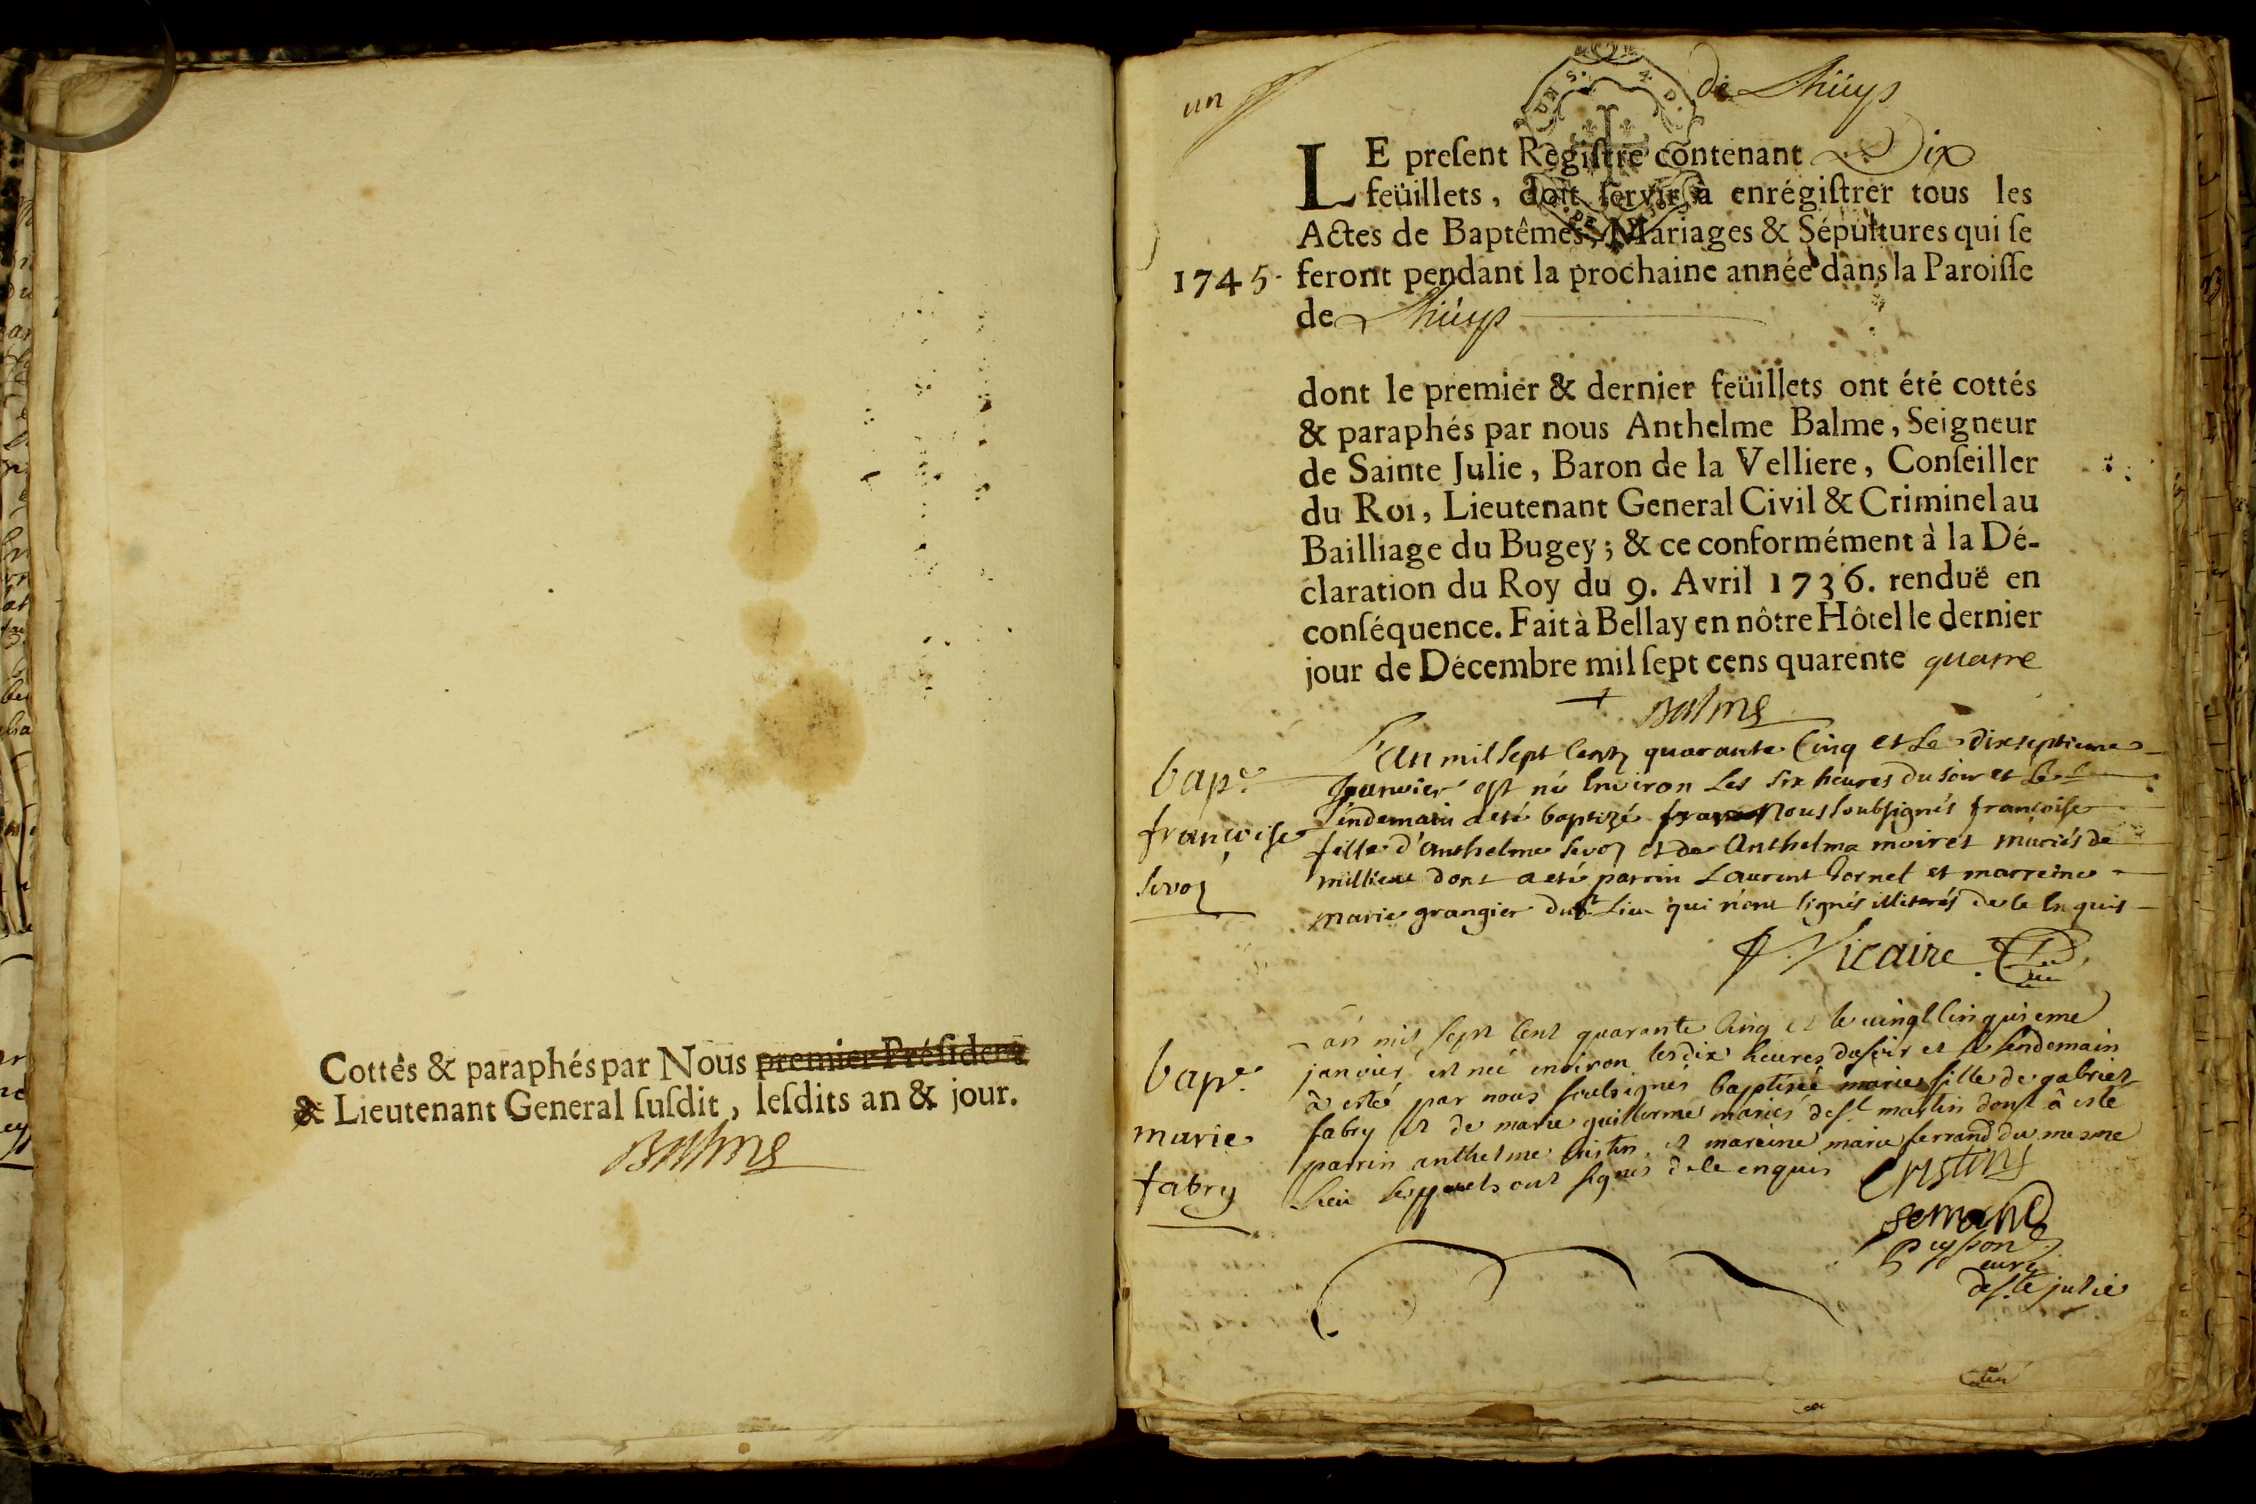 Cottés & paraphés par Nous premier Président
& Lieutenant General ſuſdit, leſdits an & jour.
Balme
un
de Lhüys
LE preſent Regiſtre contenant Dix
feüillets, doit ſervir à enrégiſtrer tous les
Actes de Baptêmes, Mariages & Sépultures qui ſe
1745. feront pendant la prochaine année dans la Paroiſſe
de Lhüys
dont le premier & dernier feüillets ont été cottés
& paraphés par nous Anthelme Balme, Seigneur
de Sainte Julie, Baron de la Velliere, Conſeiller
du Roi, Lieutenant General Civil & Criminel au
Bailliage du Bugey; & ce conformément à la Dé-
claration du Roy du 9. Avril 1736. renduë en
conſéquence. Fait à Bellay en nôtre Hôtel le dernier
jour de Décembre mil ſept cens quarente quatre
Balme
bap.e
françoise
L'an mil sept cents quarante cinq et le dixseptieme
Januier est né environ les six heures du soir et le
l'endemain a eté baptizé nous soubsignés françoise
fille d'anthelme et de Anthelma moiret mariés de
millieu dont a eté parrin Laurent et marreine
marie grangier dud.t Lieu qui n'ont signés illiterés de ce Enquis
Vicaire
bapt.
marie
fabry
L'an mil sept cent quarante cinq et le vingt cinquieme
janvier est née environ les dix heures du soir et le lendemain
à esté par nous soussignés baptisée marie fille de gabriel
fabry et de marie guillerme mariés de s.t martin dont à esté
parrin anthelme cristin et mareine marie ferrand du mesme
lieu lesquels ont signés de ce enquis cristin
ferrand
peysson
curé
de s.te julie